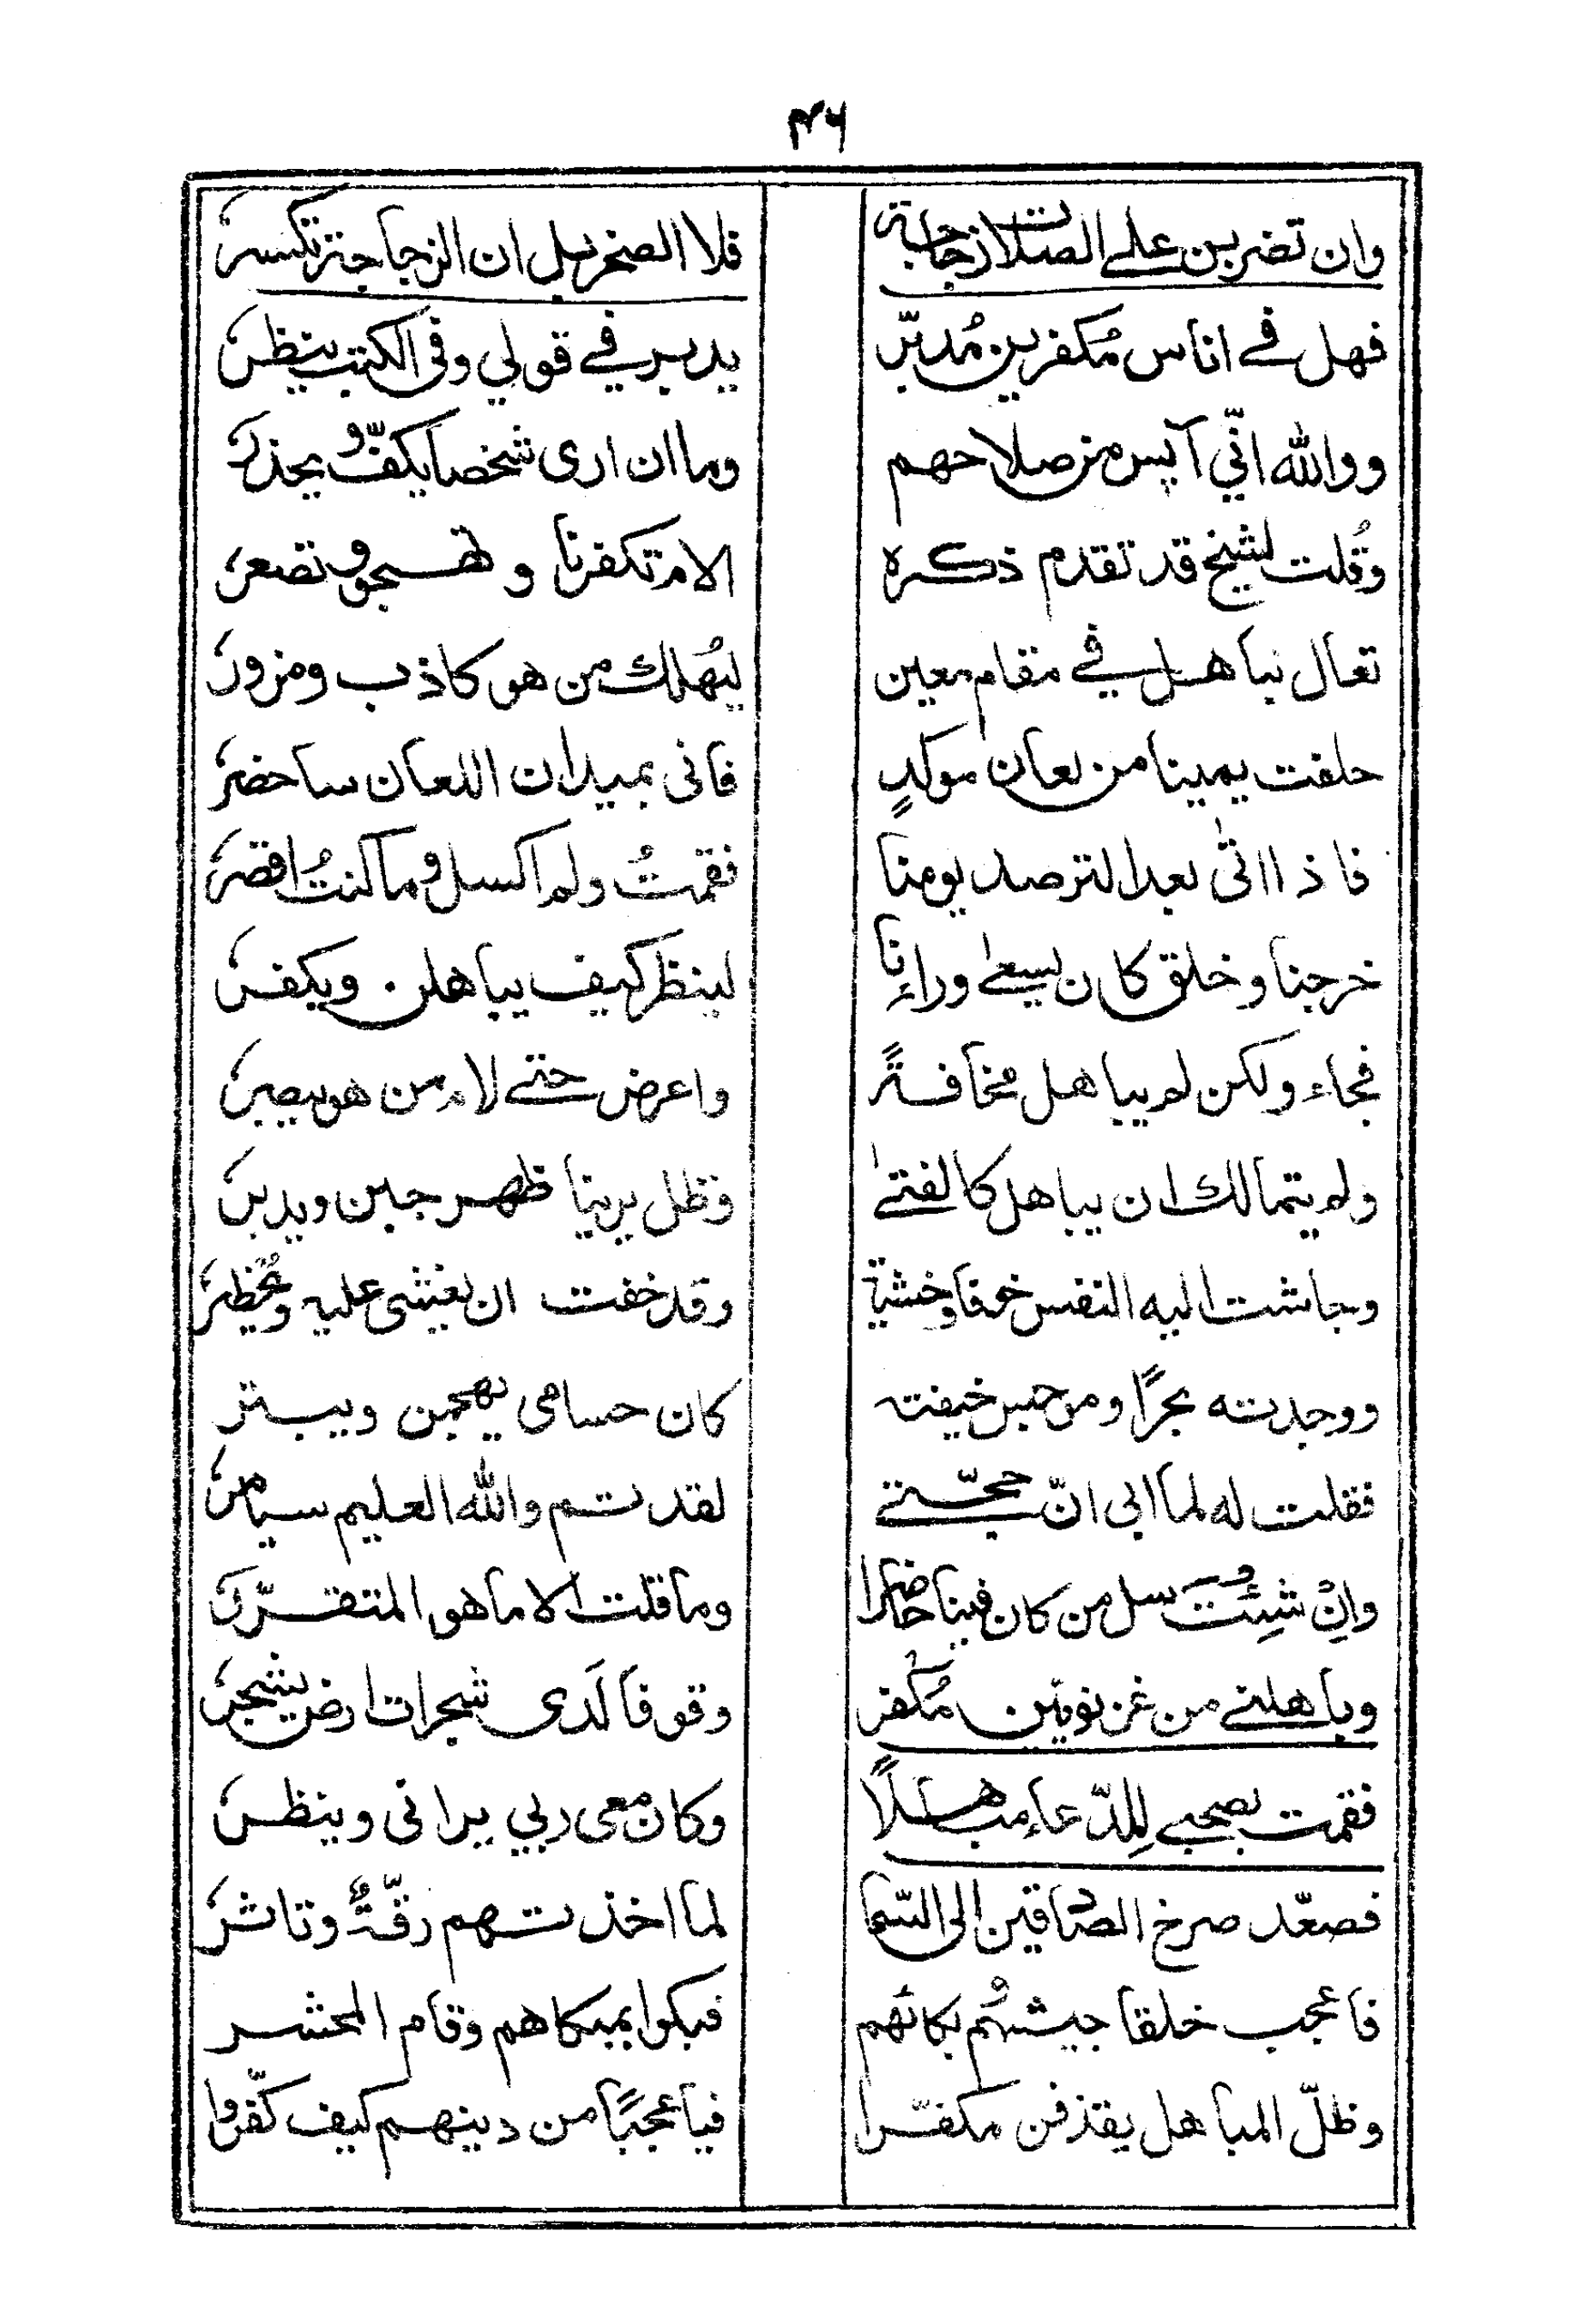 ۴۶
وان تضربن على الصلات زجاجة فلا الصخر بل ان الزجاجة تكسر
فهل في اناس مُكفرين مُدبّر يدبر في قولي وفى الكتب ينظر
ووالله انّي آيس من صلاحهم وما ان ارى شخصا يكفّ ويحذر
وقُلت لشيخ قد تقدم ذكره الام تكفرنا وتهجو وتصعر
تعال نباهل في مقام معين ليُهلك من هو كاذب ومزور
حلفت يمينا من لعان موكدٍ فانى بميدان اللعان ساحضر
فاذا اتى بعد الترصد يومنا فقمتُ ولم اكسل وما كنتُ اقصر
خرجنا وخلق كان يسعى وراءنا لينظر كيف يباهلن ويكفر
فجاء ولكن لم يباهل مخافةً واعرض حتى لام من هو يبصر
ولم يتمالك ان يباهل كالفتى وظل يرينا ظهر جبن ويدبر
وجاشت اليه النفس خوفا وخشية وقد خفت ان يغشى عليه ويُحظر
ووجدته بحرًا ومن خيفته كان حسامى يهجمن ويبتر
فقلت له لما ابى انّ حجّتي لقد تم والله العليم سيامر
وانْ شئت سل من كان فينا حاضرا وما قلت الا ما هو المتقرّر
وباهلني من غزنويّين مُكفر وقوفا لَدى شجرات ارض يشجر
فقمت بصحبي لِلدّعاء مباهلًا وكان معى ربي يرانى وينظر
فصعّد صرخ الصادقين الى السّما لما اخذتهم رقّةٌ وتاثر
فاعجب خلقا جيشهُم بكائهم فبكوا بمبكاهم وقام المحشر
وظلّ المباهل يقذفن مكفّرا فيا عجبًا من دينهم كيف كفّروا